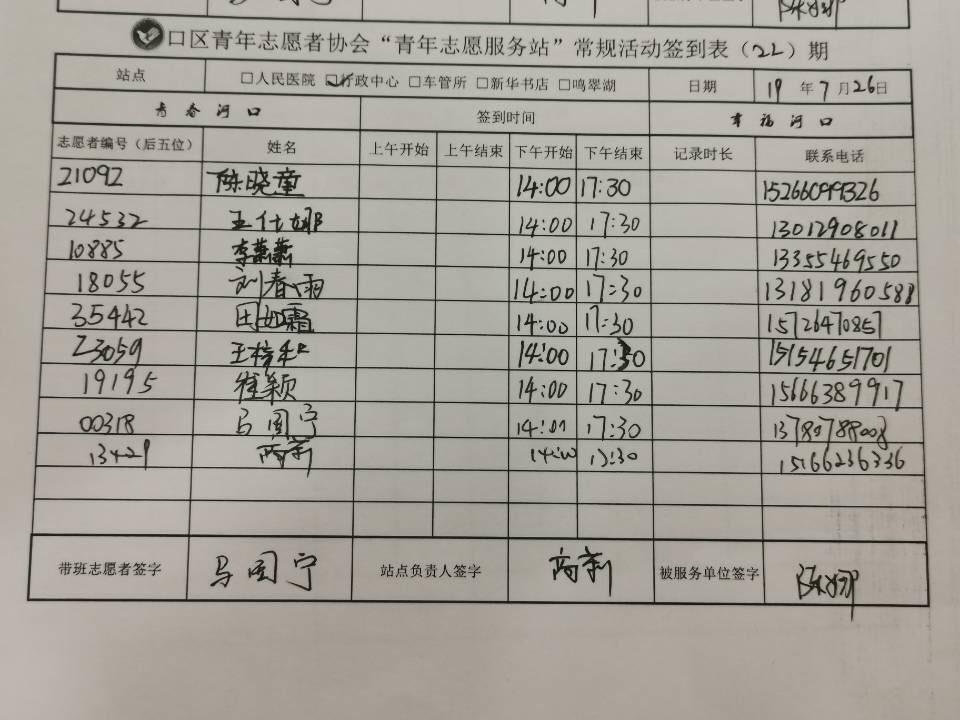 口区青年志愿者协会“青年志愿服务站”常规活动签到表（22）期
站点 □人民医院 ☑行政中心 □车管所 □新华书店 □鸣翠湖 日期 19年7月26日
青春河口 签到时间 幸福河口
志愿者编号（后五位） 姓名 上午开始 上午结束 下午开始 下午结束 记录时长 联系电话
21092 陈晓童 14:00 17:30 15266099326
24532 王仕娜 14:00 17:30 13012908011
10885 李萧萧 14:00 17:30 13355469550
18055 刘春雨 14:00 17:30 13181960588
35442 田如霜 14:00 17:30 15726470857
23059 14:00 17:30 15154651701
19195 崔颖 14:00 17:30 15666389917
00318 马国宁 14:00 17:30
13429 商新 14:00 17:30 15166236336
带班志愿者签字 马国宁 站点负责人签字 商新 被服务单位签字